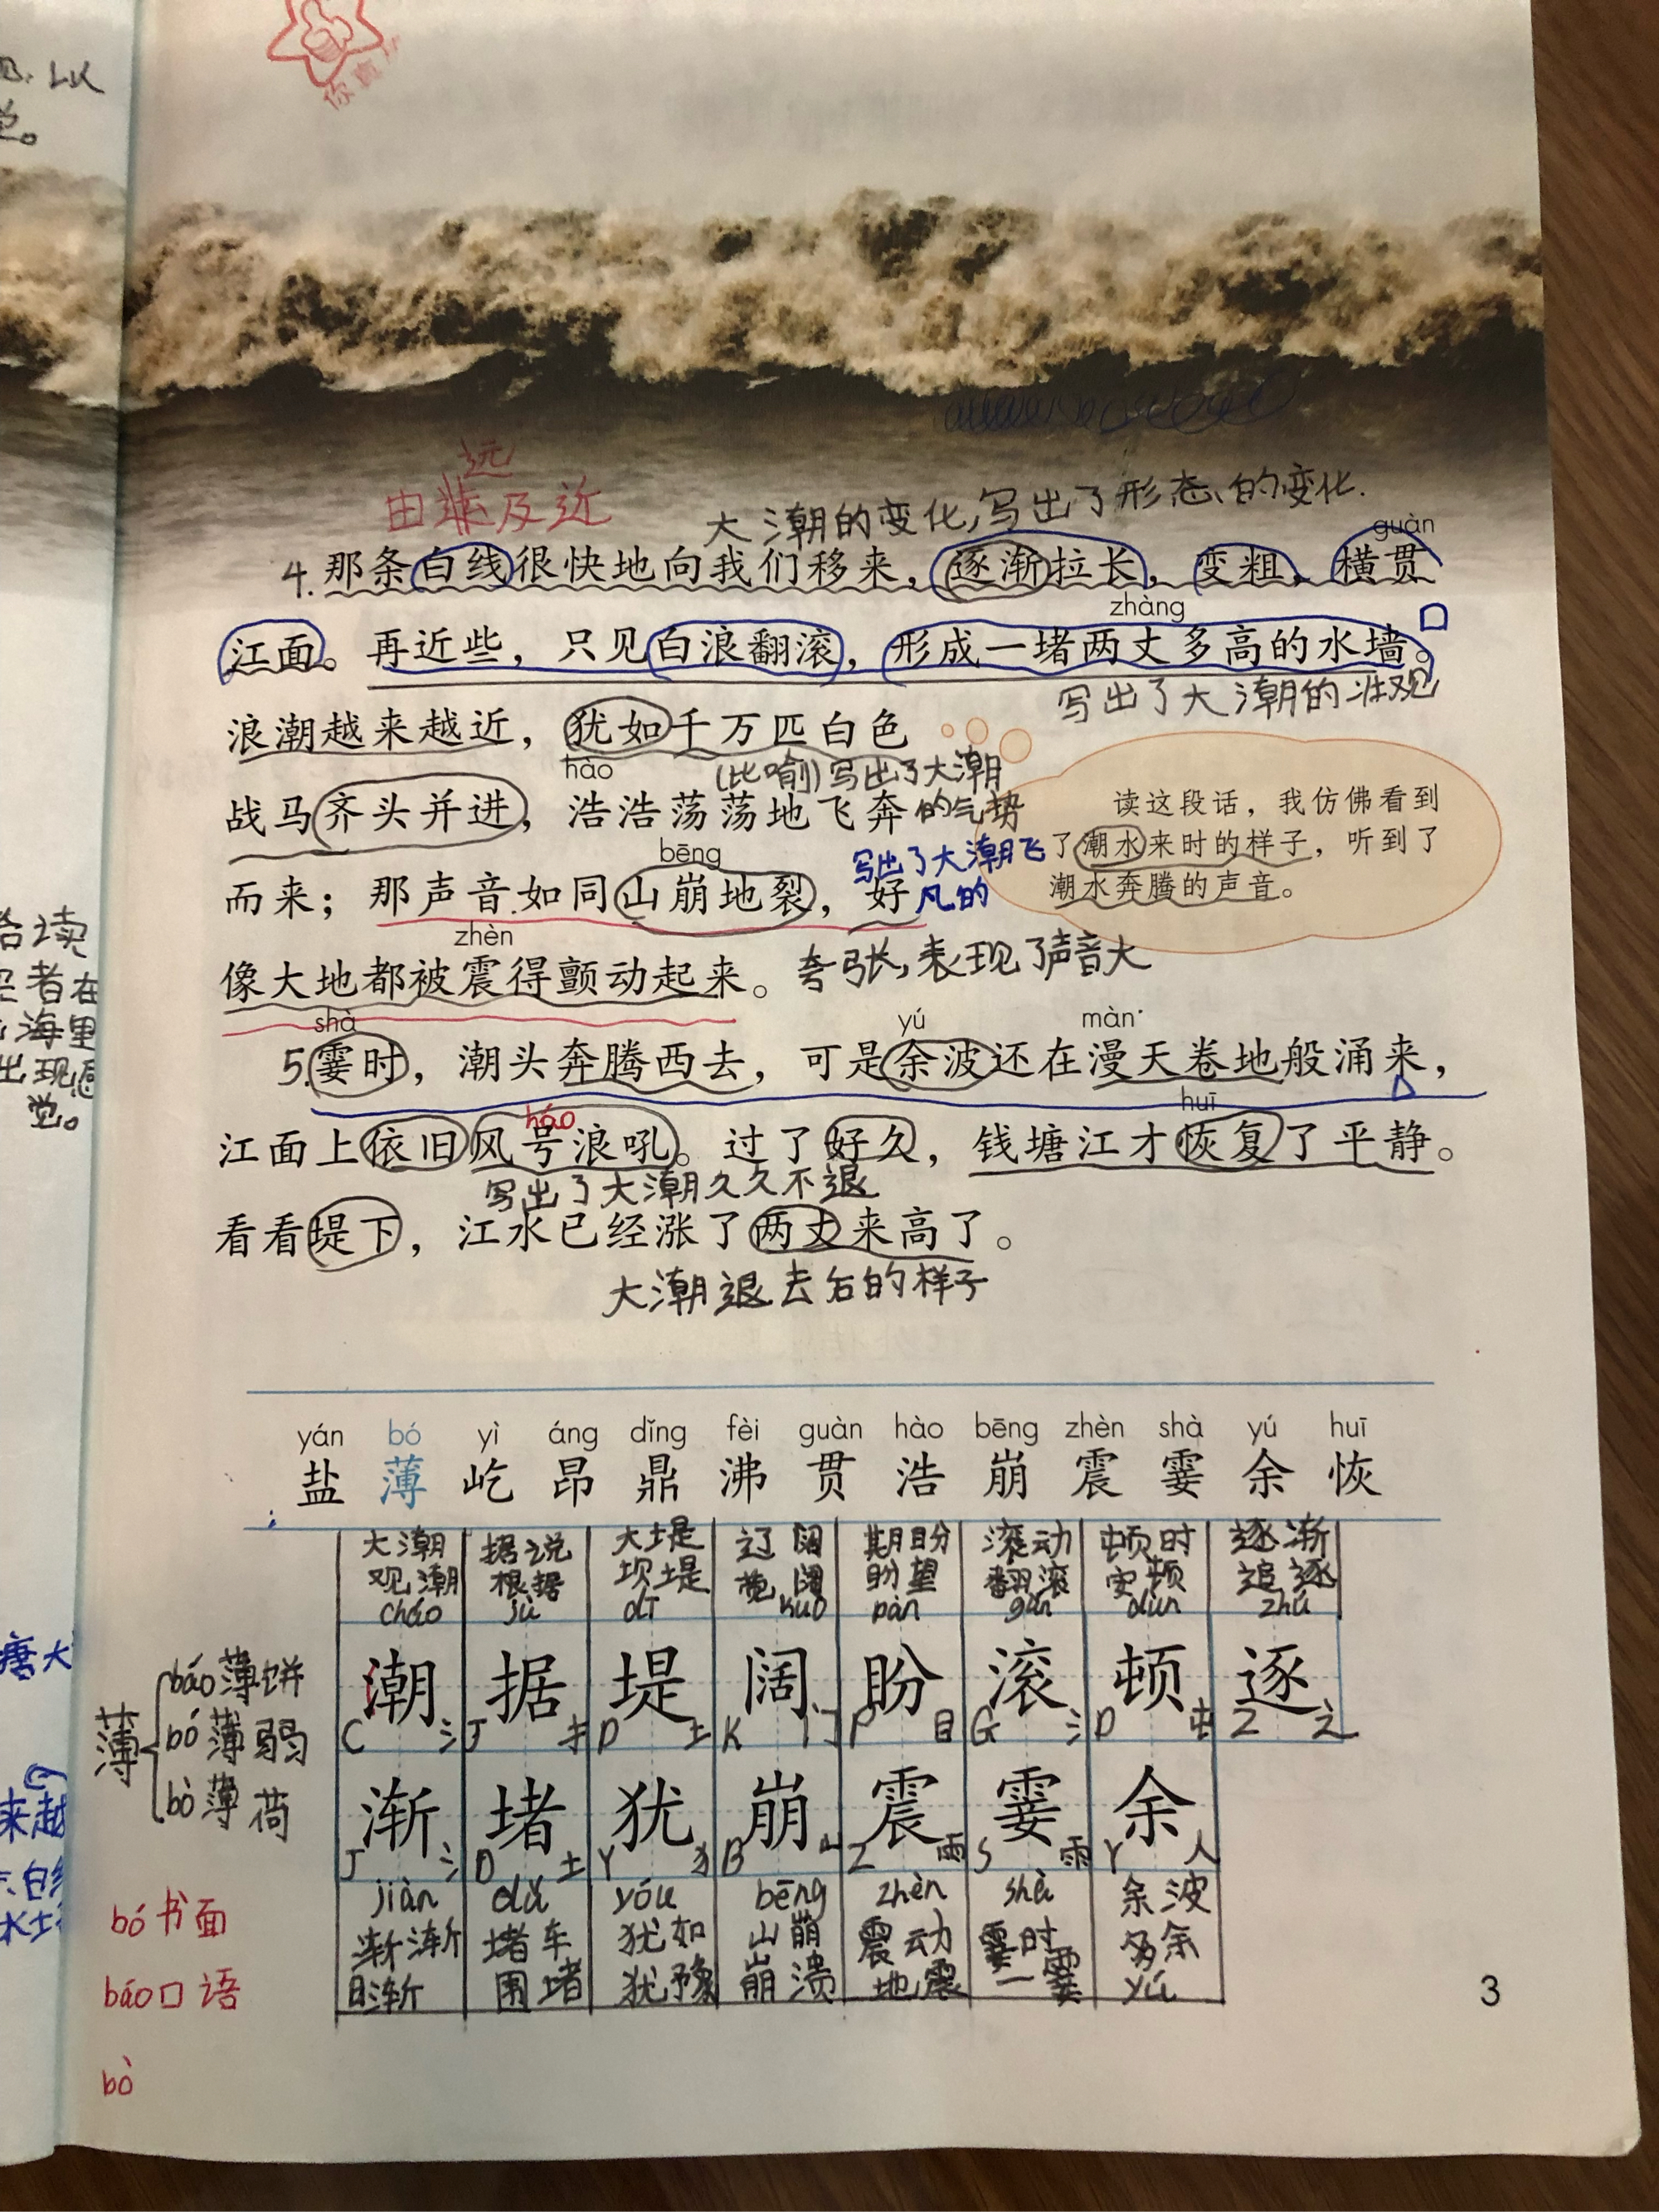 你真
远
由 及近
大潮的变化,写出了形态的变化.
guàn
4.那条白线很快地向我们移来，逐渐拉长，变粗，横贯
zhàng
江面。再近些，只见白浪翻滚，形成一堵两丈多高的水墙。
写出了大潮的壮观
浪潮越来越近，犹如千万匹白色
hào
(比喻)写出了大潮
战马齐头并进，浩浩荡荡地飞奔
的气势
bēng
写出了大潮飞
凡的
而来；那声音如同山崩地裂，好
zhèn
夸张,表现了声音大
像大地都被震得颤动起来。
读这段话，我仿佛看到
了潮水来时的样子，听到了
潮水奔腾的声音。
shà yú màn
5.霎时，潮头奔腾西去，可是余波还在漫天卷地般涌来，
háo huī
江面上依旧风号浪吼。过了好久，钱塘江才恢复了平静。
写出了大潮久久不退
看看堤下，江水已经涨了两丈来高了。
大潮退去后的样子
yán bó yì áng dǐng fèi guàn hào bēng zhèn shà yú huī
盐 薄 屹 昂 鼎 沸 贯 浩 崩 震 霎 余 恢
大潮 据说 大堤 辽阔 期盼 滚动 顿时 逐渐
观潮 根据 坝堤 宽阔 盼望 翻滚 安顿 追逐
cháo jù dī kuò pàn gǔn dùn zhú
潮 据 堤 阔 盼 滚 顿 逐
C 氵 J 扌 D 土 K 门 P 目 G 氵 D 屯 Z 辶
渐 堵 犹 崩 震 霎 余
J 氵 D 土 Y 犭 B 山 Z 雨 S 雨 Y 人
jiàn dǔ yóu bēng zhèn shà 余波
渐渐 堵车 犹如 山崩 震动 霎时 多余
日渐 围堵 犹豫 崩溃 地震 一霎 yú
薄
báo 薄饼
bó 薄弱
bò 薄荷
bó 书面
báo 口语
bò
3